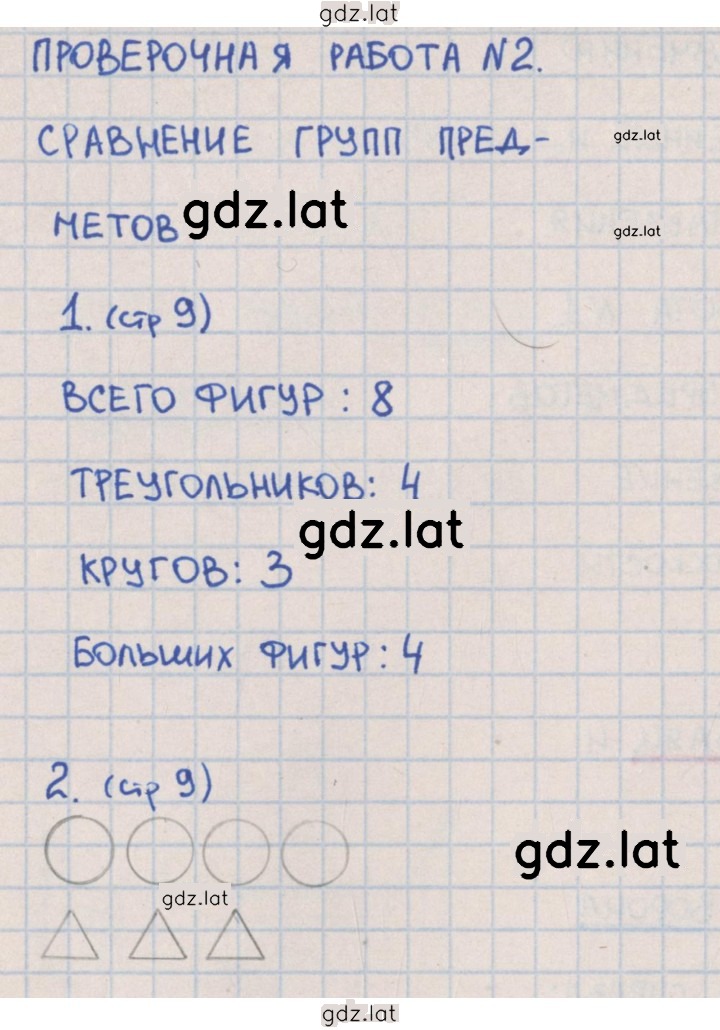 gdz.lat
ПРОВЕРОЧНАЯ РАБОТА №2.
СРАВНЕНИЕ ГРУПП ПРЕД-
gdz.lat
МЕТОВ
gdz.lat
gdz.lat
1. (стр 9)
ВСЕГО ФИГУР : 8
ТРЕУГОЛЬНИКОВ: 4
gdz.lat
КРУГОВ: 3
БОЛЬШИХ ФИГУР: 4
2. (стр 9)
gdz.lat
gdz.lat
gdz.lat